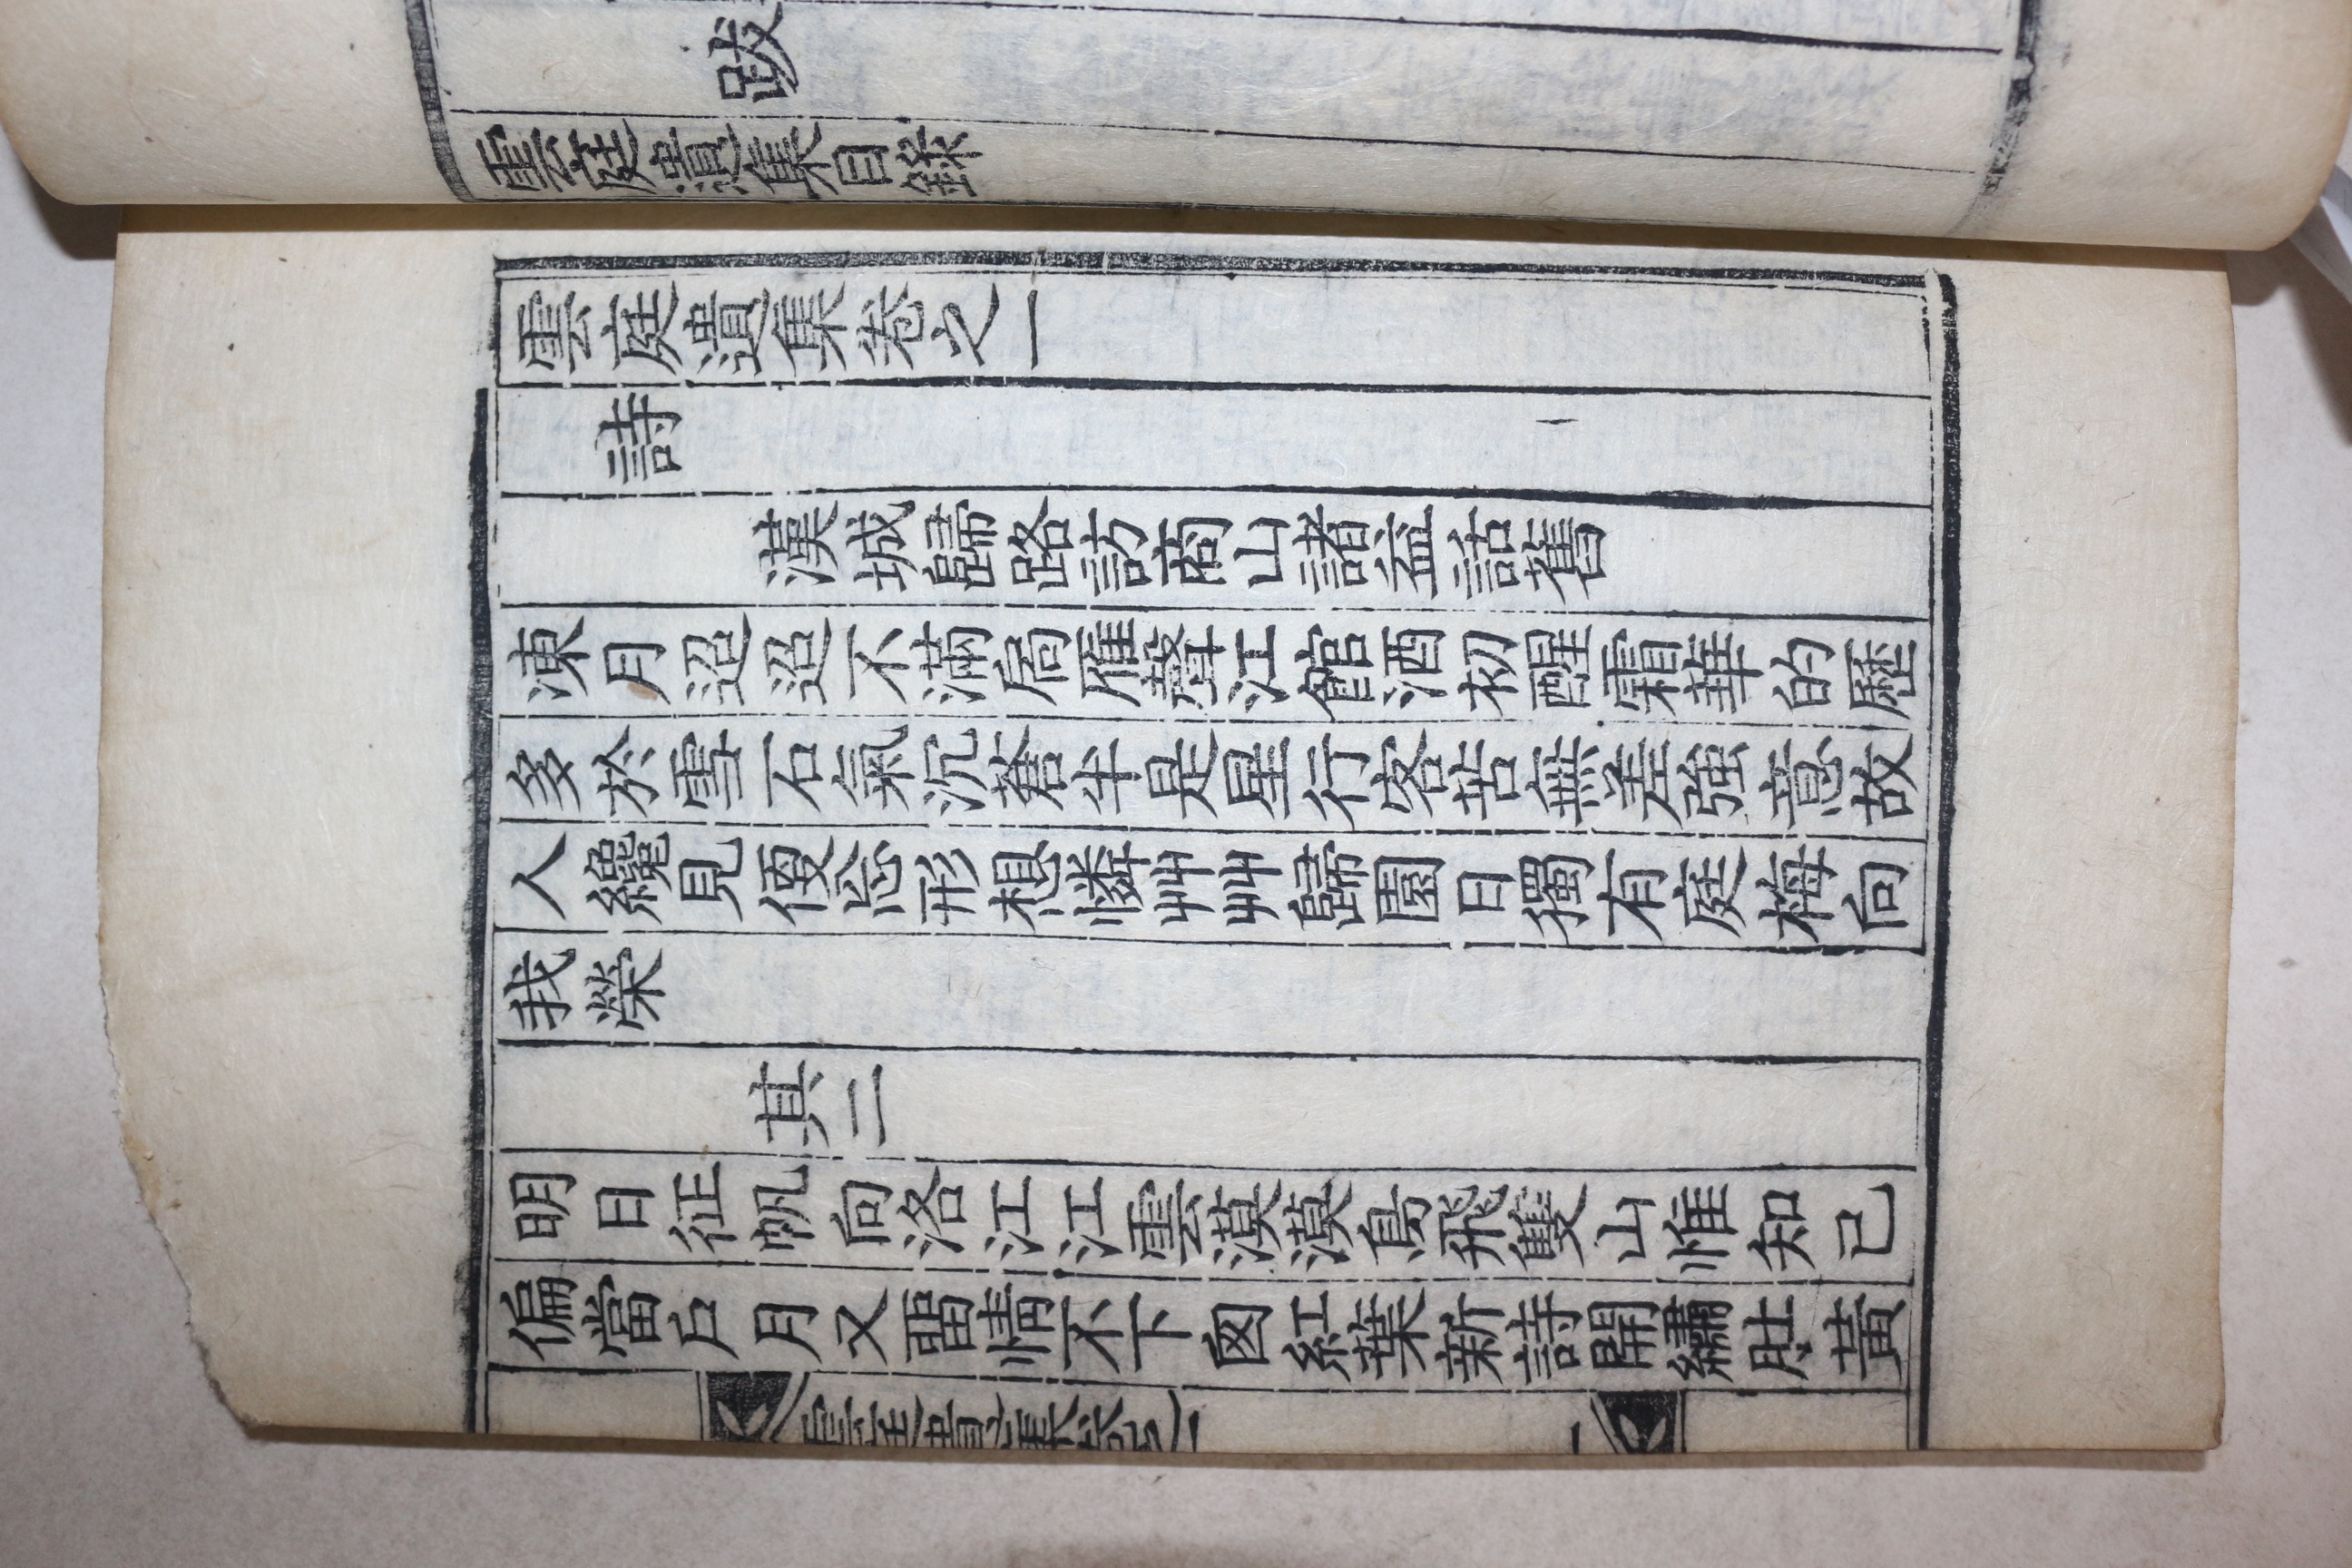 跋
雲庭遺集目錄
雲庭遺集卷之一
詩
漢城歸路訪商山諸益話舊
凍月迢迢不滿扃雁聲江館酒初醒霜華的歷
多於雪石氣沉蒼半是星行客苦無差強意故
人纔見便忘形想憐艸艸歸園日獨有庭梅向
我榮
其二
明日征帆向洛江江雲漠漠鳥飛雙山惟知己
偏當戶月又留情不下囱紅葉新詩開繡肚黃
雲庭遺集卷之一 一